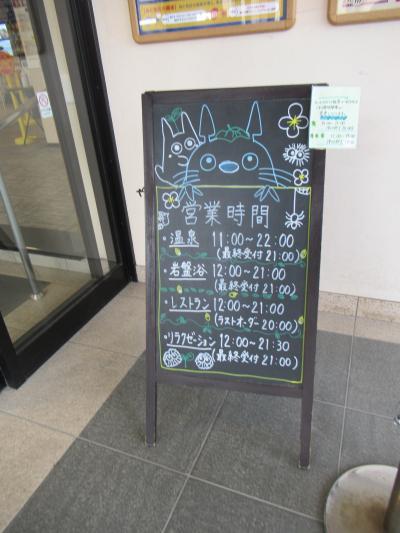 営業時間
・温泉 11:00～22:00
(最終受付21:00)
・岩盤浴 12:00～21:00
(最終受付21:00)
・レストラン 12:00～21:00
(ラストオーダー20:00)
・リラクゼーション 12:00～21:30
(最終受付21:00)